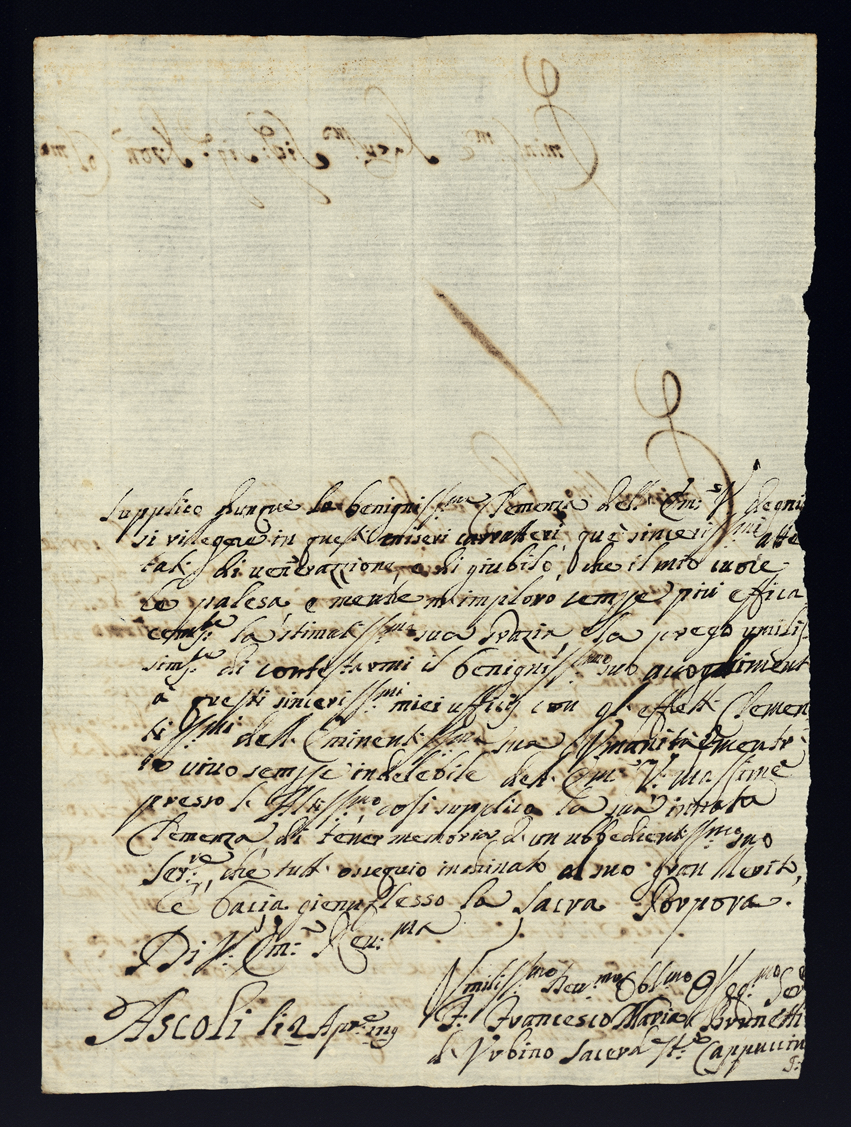 Supplico dunque la benigniss:ma Clemenza dell' Em:a V: degni
si rileggere in questi miseri carratteri que' sinceriss:mi atte
tati di venerazzione, e di giubilo, che il mio cuore
Le palesa, e mentre imploro sempre più effica
cem:te la stimatiss:ma sua Grazia, e la prego umilis
sim:te di contestarmi il benigniss:mo suo accogliment
à questi sinceriss:mi miei ufficij con gl' effetti Clemen
tiss:mi dell' Eminentiss:ma sua Umanità, e mentre
io vivo sempre indelebile dell' Em:a V:
presso l' Altiss:mo, così supplico la sua innata
Clemenza di tener memoria d' un ubbedientiss:mo suo
Ser:re, che tutt' ossequio inchinato al suo gran Merito,
Le bacia genuflesso la Sacra Porpora.
Di V: Em:a Rev:ma
Umiliss:mo Dev:mo Obl:mo Osseq:mo Se
Ascoli li 2 Apr:e
F: Francesco Maria Brunetti
d' Urbino Sacerd:te Cappuccin